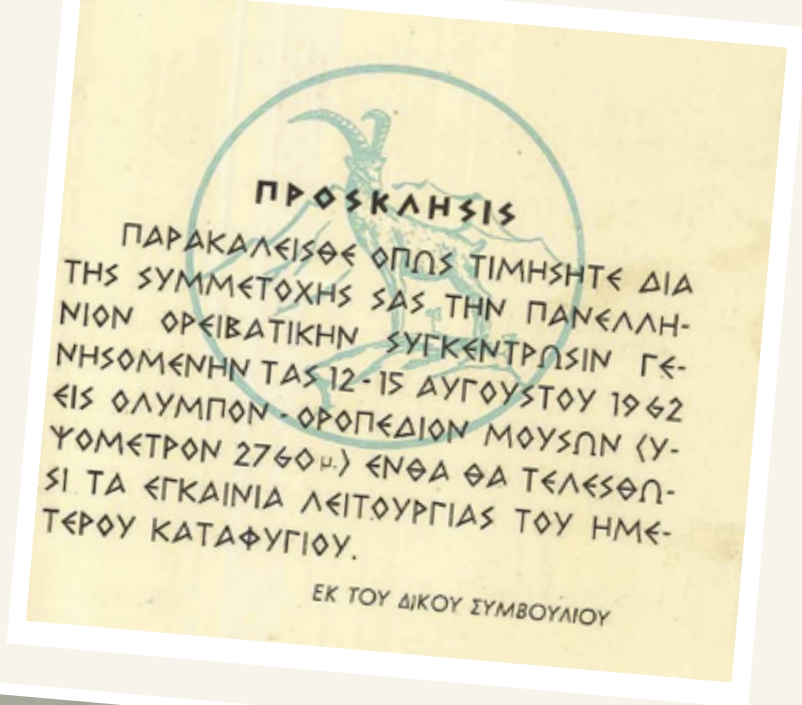 ΠΡΟΣΚΛΗΣΙΣ
ΠΑΡΑΚΑΛΕΙΣΘΕ ΟΠΩΣ ΤΙΜΗΣΗΤΕ ΔΙΑ
ΤΗΣ ΣΥΜΜΕΤΟΧΗΣ ΣΑΣ ΤΗΝ ΠΑΝΕΛΛΗ-
ΝΙΟΝ ΟΡΕΙΒΑΤΙΚΗΝ ΣΥΓΚΕΝΤΡΩΣΙΝ ΓΕ-
ΝΗΣΟΜΕΝΗΝ ΤΑΣ 12-15 ΑΥΓΟΥΣΤΟΥ 1962
ΕΙΣ ΟΛΥΜΠΟΝ - ΟΡΟΠΕΔΙΟΝ ΜΟΥΣΩΝ (Υ-
ΨΟΜΕΤΡΟΝ 2760 μ.) ΕΝΘΑ ΘΑ ΤΕΛΕΣΘΩ-
ΣΙ ΤΑ ΕΓΚΑΙΝΙΑ ΛΕΙΤΟΥΡΓΙΑΣ ΤΟΥ ΗΜΕ-
ΤΕΡΟΥ ΚΑΤΑΦΥΓΙΟΥ.
ΕΚ ΤΟΥ ΔΙΚΟΥ ΣΥΜΒΟΥΛΙΟΥ